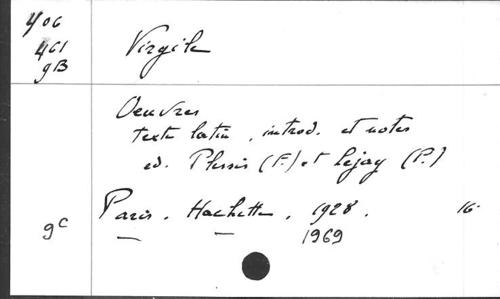 406
461
gB
Virgile
Oeuvres
texte latin, introd. et notes
ed. Plessis (F.) et Lejay (P.)
Paris. Hachette. 1928. 16
gC — — 1969